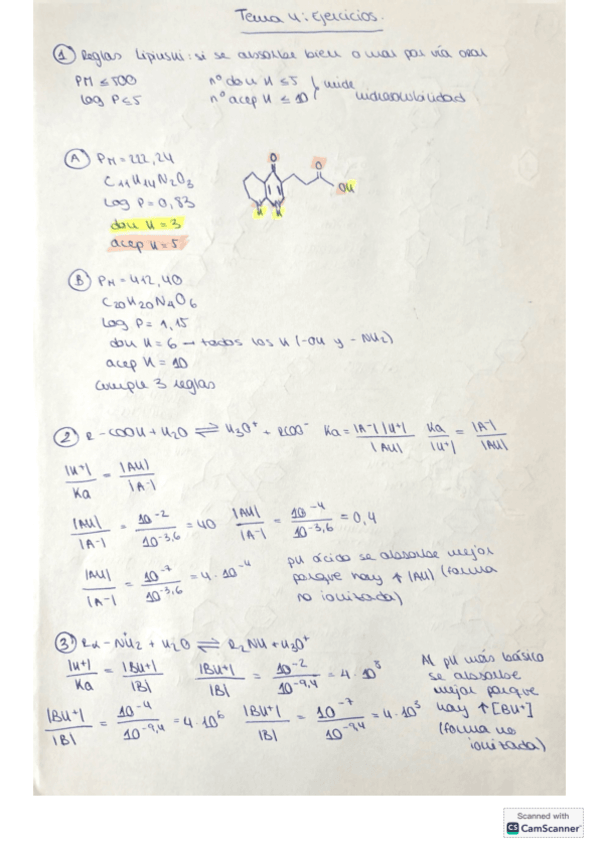 Tema 4: Ejercicios.
① Reglas Lipinski: si se absorbe bien o mal por vía oral
PM ≤ 500 nº don H ≤ 5 } mide
log P ≤ 5 nº acep H ≤ 10 } hidrosolubilidad
A PM = 222,24
C11H14N2O3
log P = 0,83
don H = 3
acep H = 5
O
O
OH
N N
H H
B PM = 412,40
C20H20N4O6
log P = 1,15
don H = 6 → todos los H (-OH y -NH2)
acep H = 10
cumple 3 reglas
② R-COOH + H2O ⇌ H3O+ + RCOO- Ka = |A-||H+| / |AH| Ka / |H+| = |A-| / |AH|
|H+| / Ka = |AH| / |A-|
|AH| / |A-| = 10^-2 / 10^-3,6 = 40 |AH| / |A-| = 10^-4 / 10^-3,6 = 0,4
|AH| / |A-| = 10^-7 / 10^-3,6 = 4·10^-4
pH ácido se absorbe mejor
porque hay ↑ |AH| (forma
no ionizada)
|H+| / Ka = |BH+| / |B| |BH+| / |B| = 10^-2 / 10^-9,4 = 4·10^8
|BH+| / |B| = 10^-4 / 10^-9,4 = 4·10^6 |BH+| / |B| = 10^-7 / 10^-9,4
Al pH más básico
se absorbe
mejor porque
hay ↑ [BH+]
(forma no
ionizada)
Scanned with
CS CamScanner